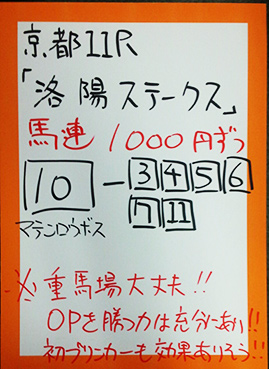 京都11R
「洛陽ステークス」
馬連1000円ずつ
10-3456
7 11
マテンロウボス
※重馬場大丈夫!!
OPを勝つ力は充分にあり!!
初ブリンカーも効果ありそう!!